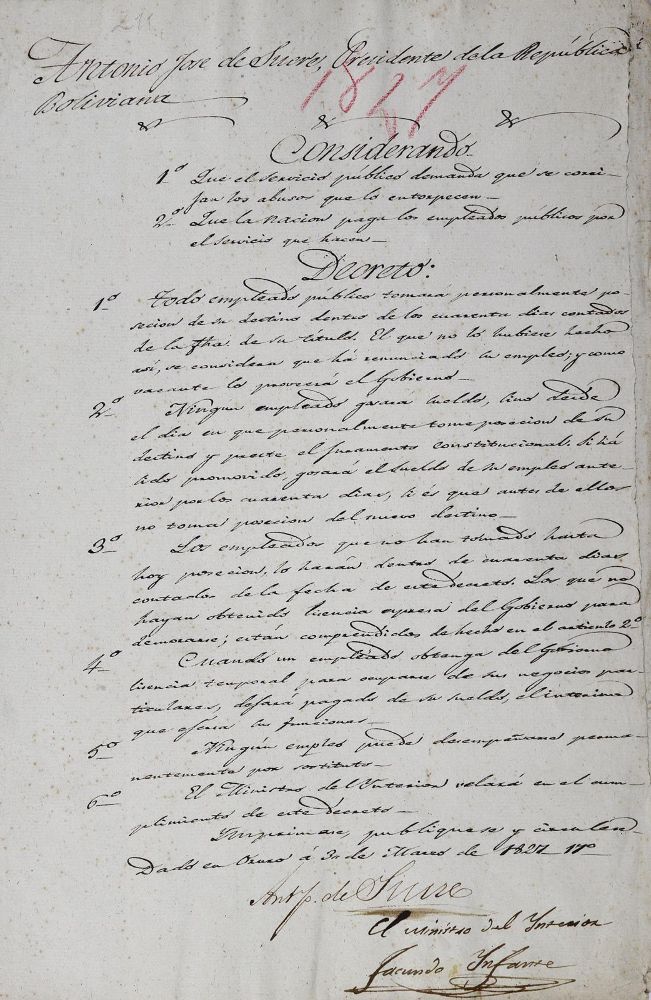 211
Antonio José de Sucre, Presidente de la República
Boliviana
1827
Considerando
1º Que el servicio público demanda que se corri-
jan los abusos que lo entorpecen
2º Que la nacion paga los empleados públicos por
el servicio que hacen
Decreto:
1º Todo empleado público tomará personalmente po-
secion de su destino dentro de los cuarenta dias contados
de la fha. de su título. El que no lo hubiere hecho
asi, se considera que há renunciado su empleo; y como
vacante lo proveerá el Gobierno
2º Ningun empleado gozará sueldo, sino desde
el dia en que personalmente tome posecion de su
destino y preste el juramento constitucional. Si há
sido promovido, gozará el sueldo de su empleo ante-
rior por los cuarenta dias, si és que antes de ellos
no toma posecion del nuevo destino
3º Los empleados que no han tomado hasta
hoy posecion, lo harán dentro de cuarenta dias
contados de la fecha de este decreto. Los que no
hayan obtenido licencia espresa del Gobierno para
demorarse; están comprendidos de hecho en el articulo 2º
4º Cuando un empleado obtenga del Gobierno
licencia temporal para ocuparse de sus negocios par-
ticulares, dejará pagado de su sueldo, el interino
que ejersa sus funciones
5º Ningún empleo puede desempeñarse perma-
nentemente por sostituto
6º El Ministro del Interior velará en el cum-
plimiento de este decreto
Imprimase, publiquese y circulese
Dado en Oruro á de Marzo de 1827
Ant. J. de Sucre
El Ministro del Interior
Facundo Infante